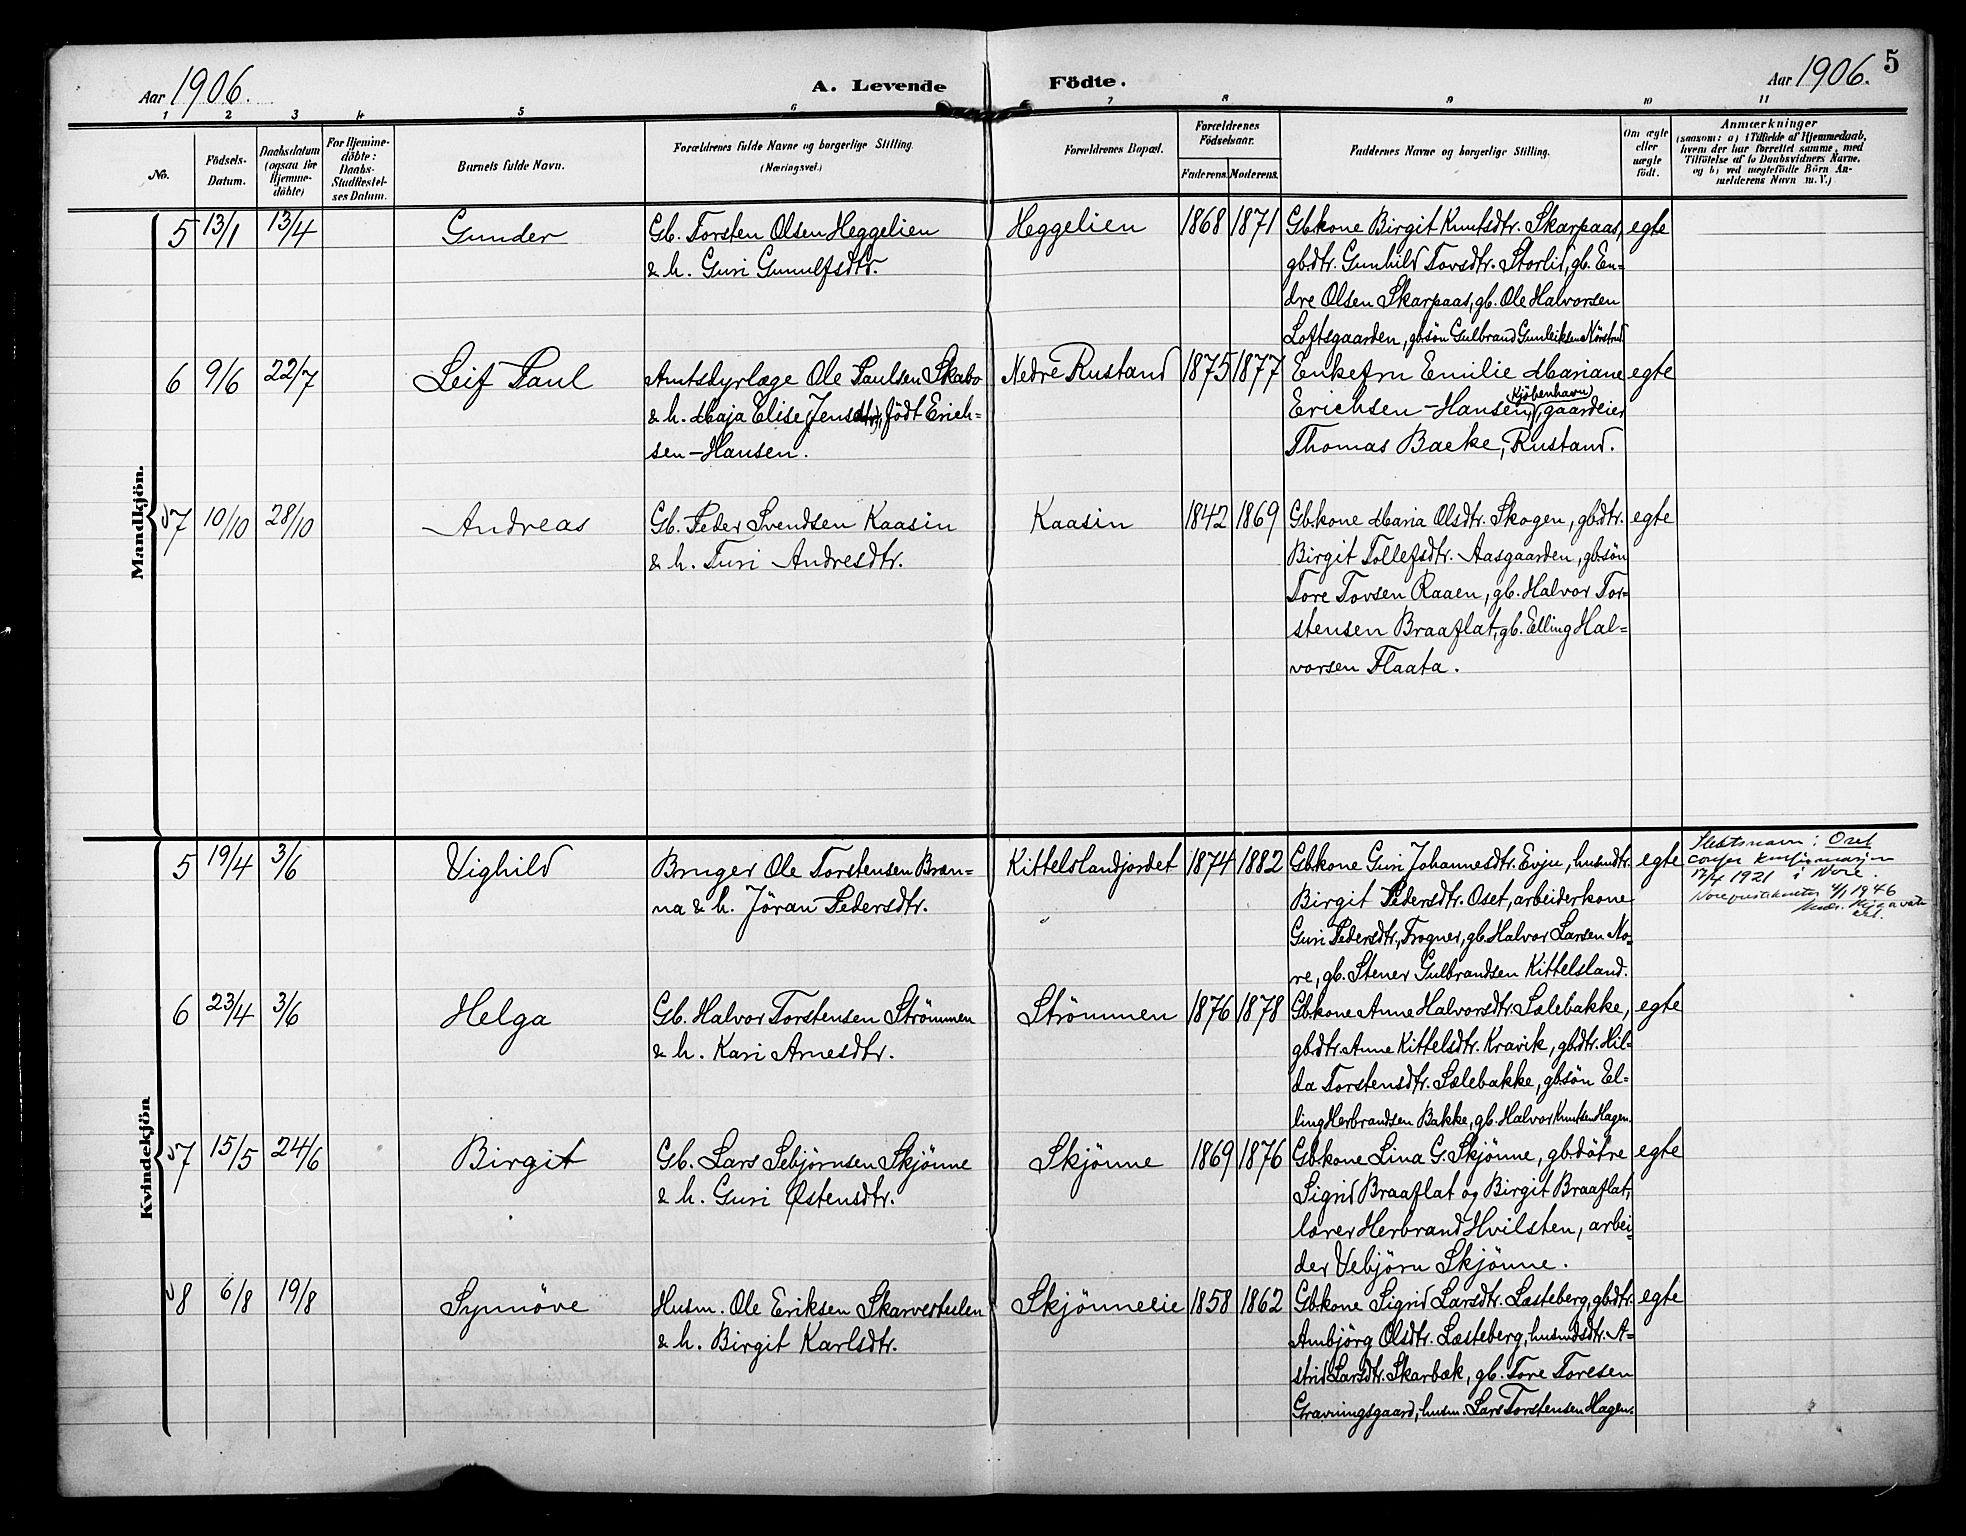 Aar 1906.
A. Levende Födte.
Aar 1906.
5
1 2 3 4 5 6 7 8 9 10 11
No.
Födsels-
Datum.
Daabsdatum
(ogsaa for
Hjemme-
döbte)
For Hjemme-
döbte:
Daabs-
Stadfæstel-
ses Datum.
Barnets fulde Navn.
Forældrenes fulde Navne og borgerlige Stilling.
(Næringsvei.)
Forældrenes Bopæl.
Forældrenes
Födselsaar.
Faderens. Moderens.
Faddernes Navne og borgerlige Stilling.
Om ægte
eller
uægte
født.
Anmærkninger
(saasom: a) i Tilfælde af Hjemmedaab,
hvem der har forrettet samme, med
Tilföielse af to Daabsvidners Navne,
og b) ved uægtefödte Börn An-
melderens Navn m. V.)
Mandkjön.
5 13/1 13/4 Gunder
Gb. Torsten Olsen Heggelien
& h. Guri Gunulfsdtr.
Heggelien 1868 1871
Gbkone Birgit Knutsdtr. Skarpaas,
gbdtr. Gunhild Tovsdtr. Storlid, gb. En-
dre Olsen Skarpaas, gb. Ole Halvorsen
Loftsgaarden, gbsön Gulbrand Gunleiksen Nörstrud
egte
6 9/6 22/7 Leif Paul
Amtsdyrlæge Ole Paulsen Skabo
& h. Maja Elise Jensdtr, födt Erich-
sen-Hansen.
Nedre Rustand 1875 1877
Enkefru Emilie Mariane
Erichsen-Hansen, Kjöbenhavn, gaardeier
Thomas Backe, Rustand.
egte
7 10/10 28/10 Andreas
Gb. Peder Svendsen Kaasin
& h. Turi Andresdtr.
Kaasin 1842 1869
Gbkone Maria Olsdtr. Skogen, gbdtr.
Birgit Tollefsdtr. Aasgaarden, gbsön
Tore Tovsen Raaen, gb. Halvor Tor-
stensen Braaflat, gb. Elling Hal-
vorsen Flaata.
egte
Kvindekjön
5 19/4 3/6 Vighild
Bruger Ole Torstensen Bræn-
na & h. Jöran Pedersdtr.
Kittelslandjordet 1874 1882
Gbkone Guri Johannesdtr. Evju, husmdtr.
Birgit Pedersdtr. Oset, arbeiderkone
Guri Pedersdtr, Trogner, gb. Halvor Larsen No-
re, gb. Stener Gulbrandsen Kittelsland.
egte
Slektsnavn: Oset
1921 i Nore.
1946
6 23/4 3/6 Helga
Gb. Halvor Torstensen Strömmen
& h. Kari Arnesdtr.
Strömmen 1876 1878
Gbkone Anne Halvorsdtr. Sælebakke,
gbdtr. Anne Kittelsdtr. Kravik, gbdtr. Hil-
da Torstensdtr. Sælebakke, gbsön El-
ling Herbrandsen Bakke, gb. Halvor Knutsen Hagen.
egte
7 15/5 24/6 Birgit
Gb. Lars Sebjörnsen Skjönne
& h. Guri Østensdtr.
Skjönne 1869 1876
Gbkone Lina G. Skjönne, gbdötre
Sigrid Braaflat og Birgit Braaflat,
lærer Herbrand Hvilsten, arbei-
der Vebjörn Skjönne.
egte
8 6/8 19/8 Synnöve
Husm. Ole Eriksen Skarvesteilen
& h. Birgit Karlsdtr.
Skjönneeie 1858 1862
Gbkone Sigrid Larsdtr. Lasteberg, gbdtr.
Ambjörg Olsdtr. Læsteberg, husmdsdtr. A-
strid Larsdtr. Skarbæk, gb. Tore Toresen
Gravningsgaard, husm. Lars Torstensen Hagen.
egte